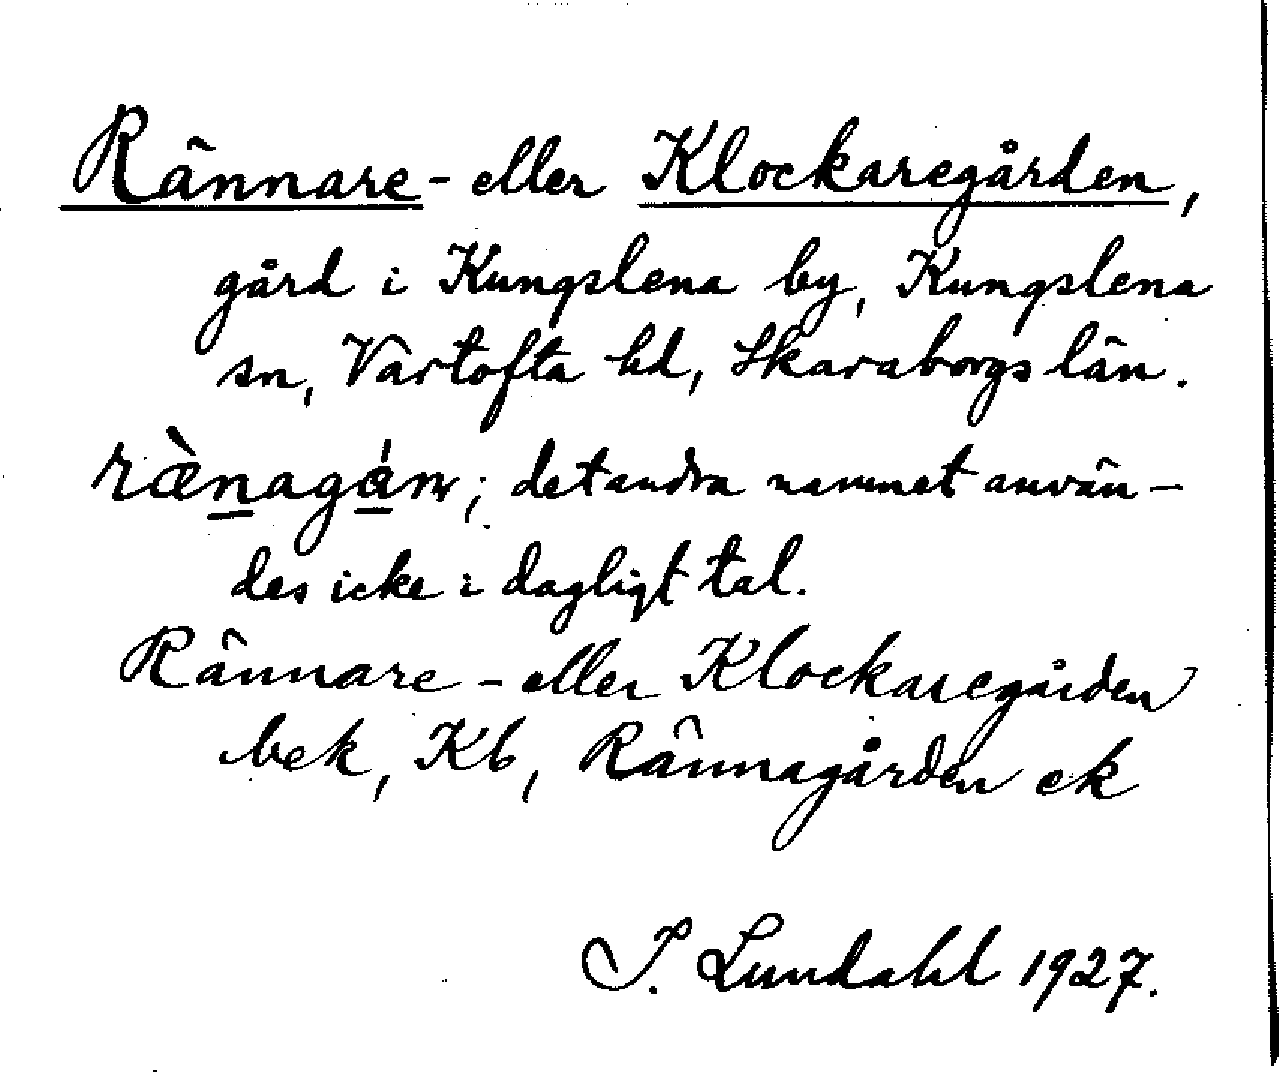 Rännare- eller Klockaregården,
gård i Kungslena by, Kungslena
sn, Vartofta hd, Skaraborgs län.
rænagán; det andra namnet använ-
des icke i dagligt tal.
Rännare- eller Klockaregården
bek, Kb, Rännagården ek
I. Lundahl 1927.